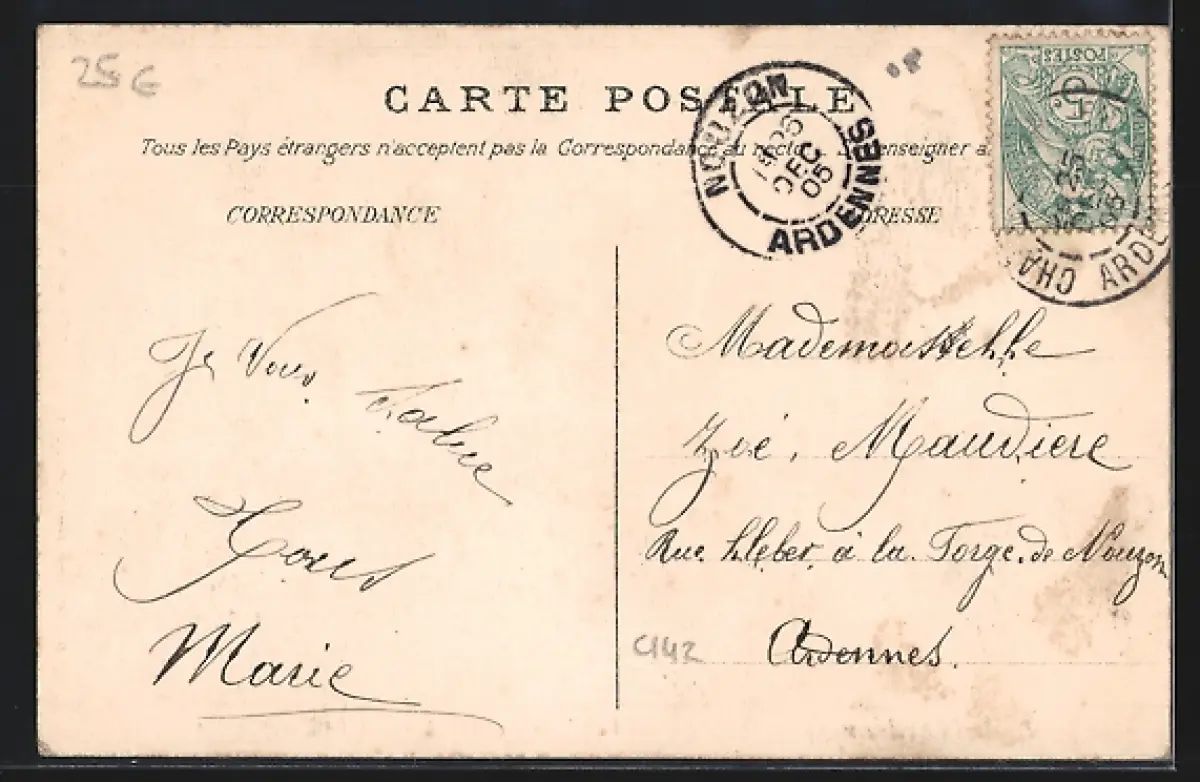 25 €
CARTE POSTALE
Tous les Pays étrangers n'acceptent pas la Correspondance au recto
CORRESPONDANCE
ADRESSE
NOUZON
ARDENNES
DEC
05
POSTES
CHA
ARDE
Je Vous Salue
Marie
Mademoiselle
Zoé. Maudiere
Rue. Kleber. à la. Forge. de Nouzon
Ardennes.
C142